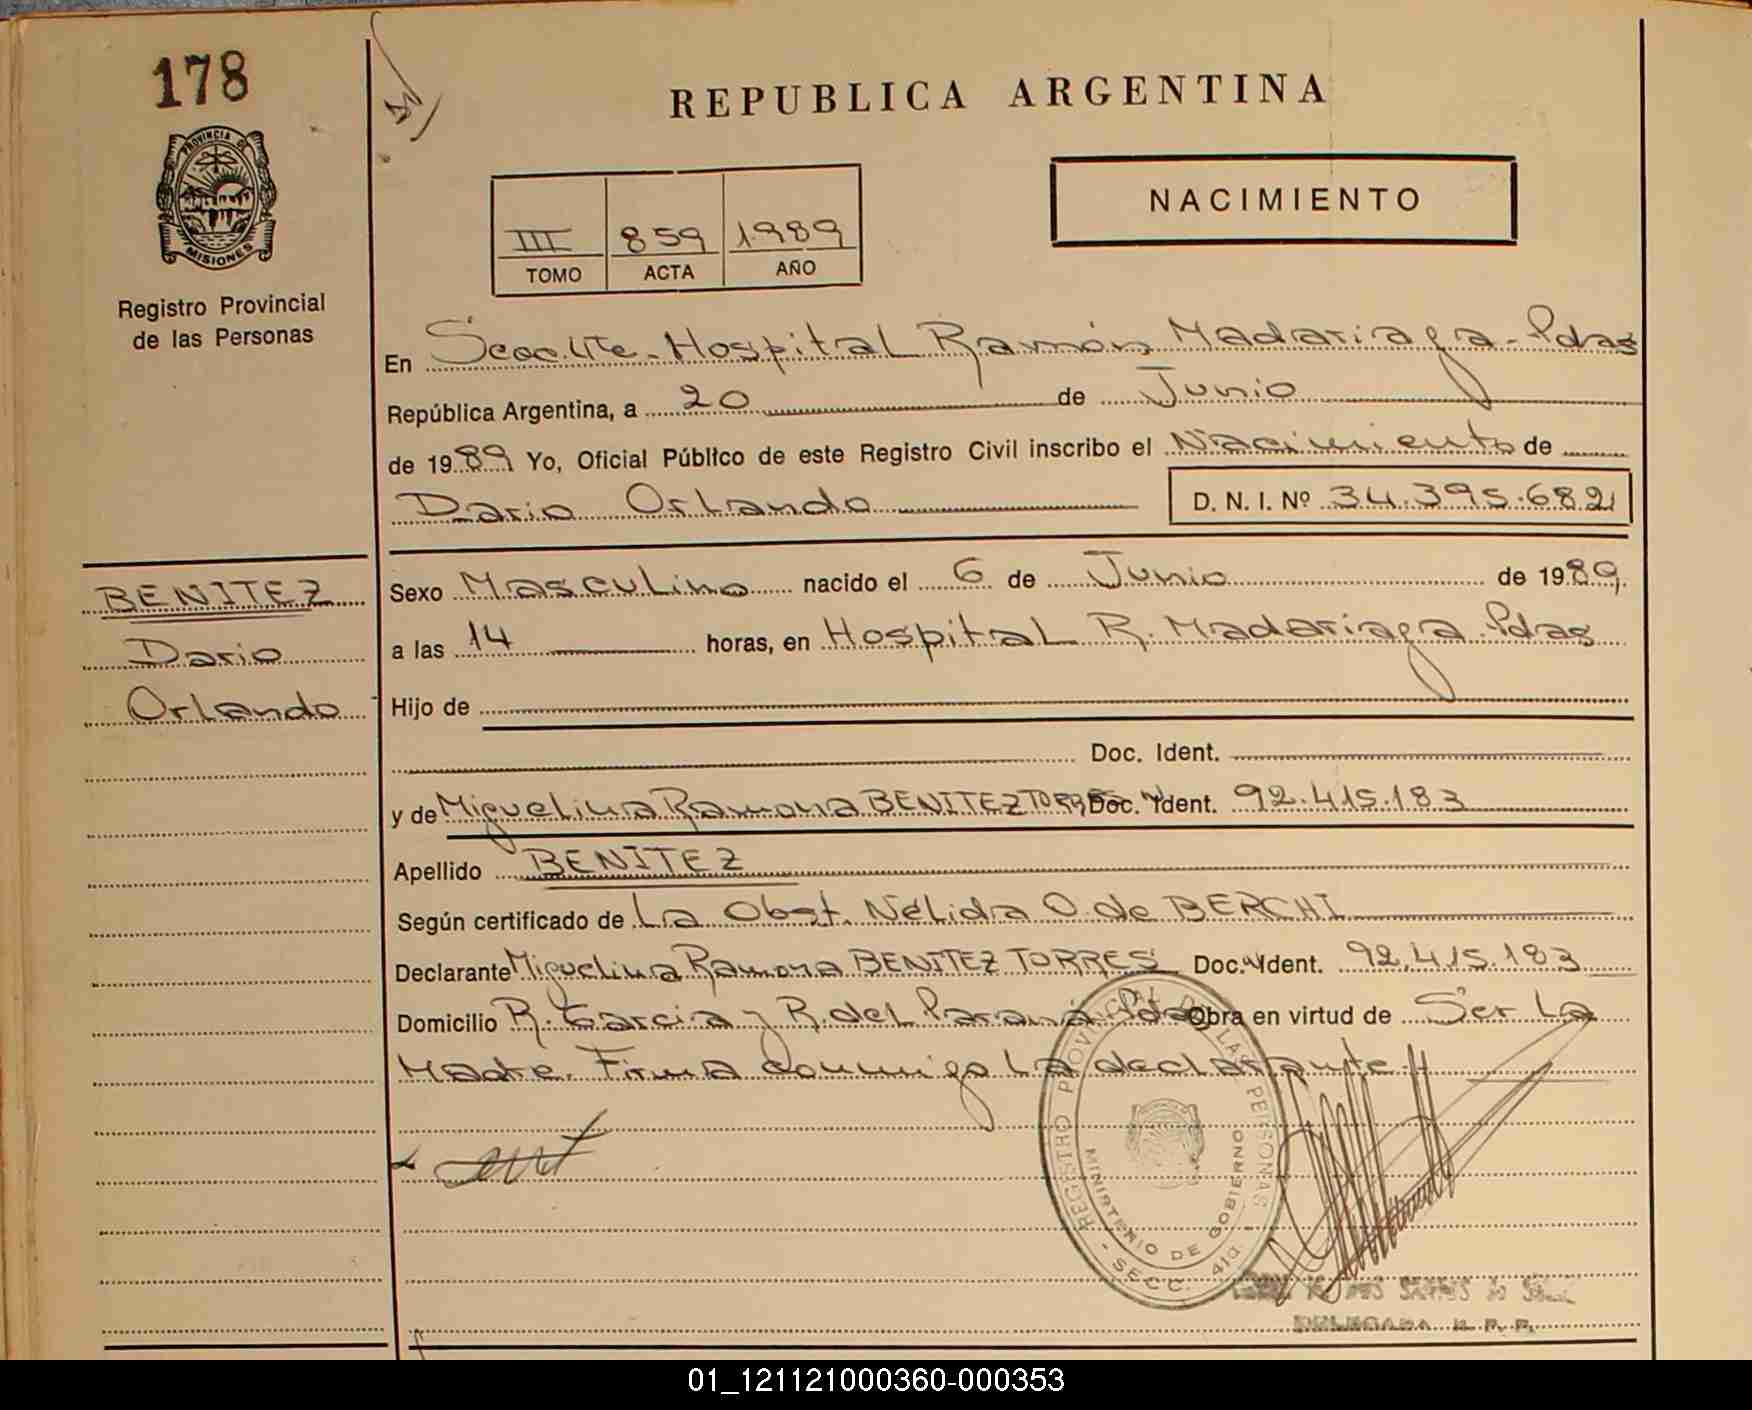 178
PROVINCIA DE
MISIONES
Registro Provincial
de las Personas
REPUBLICA ARGENTINA
NACIMIENTO
III 859 1989
TOMO ACTA AÑO
En Secc. Hospital Ramón Madariaga - Pdas
República Argentina, a 20 de Junio
de 1989 Yo, Oficial Público de este Registro Civil inscribo el Nacimiento de
Dario Orlando D. N. I. Nº 34.395.682
BENITEZ
Dario
Orlando
Sexo Masculino nacido el 6 de Junio de 1989.
a las 14 horas, en Hospital R. Madariaga. Pdas
Hijo de
Doc. Ident.
y de Miguelina Ramona BENITEZ TORRES Doc. Ident. 92.415.183
Apellido BENITEZ
Según certificado de La Obst. Nélida O. de BERCHI
Declarante Miguelina Ramona BENITEZ TORRES Doc. Ident. 92.415.183
Domicilio R. Garcia y R. del Paraná Pdas Obra en virtud de Ser La
Madre. Firma conmigo La declarante.
REGISTRO PROVINCIAL DE LAS PERSONAS
MINISTERIO DE GOBIERNO
- SECC. 4ta. -
DELEGADA R. P. P.
01_121121000360-000353